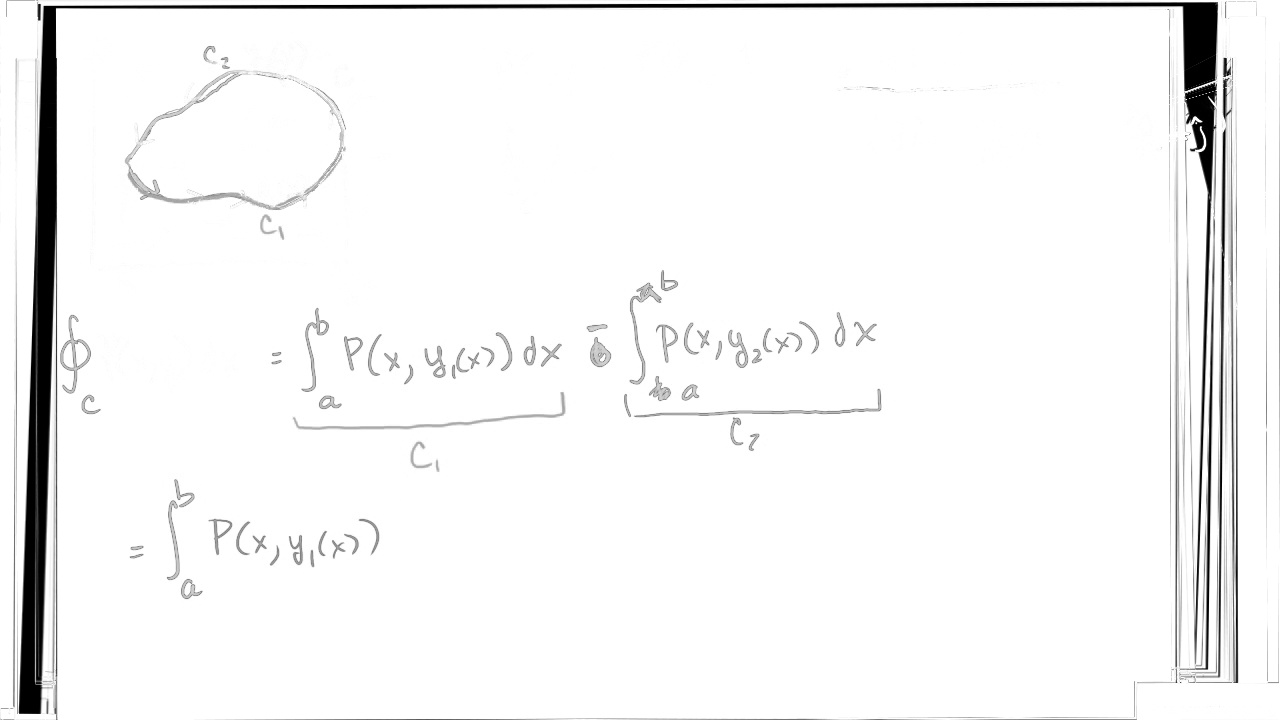 C₂
C₁
∮_C = ∫_a^b P(x, y₁(x)) dx - ∫_a^b P(x, y₂(x)) dx
C₁ C₂
= ∫_a^b P(x, y₁(x))